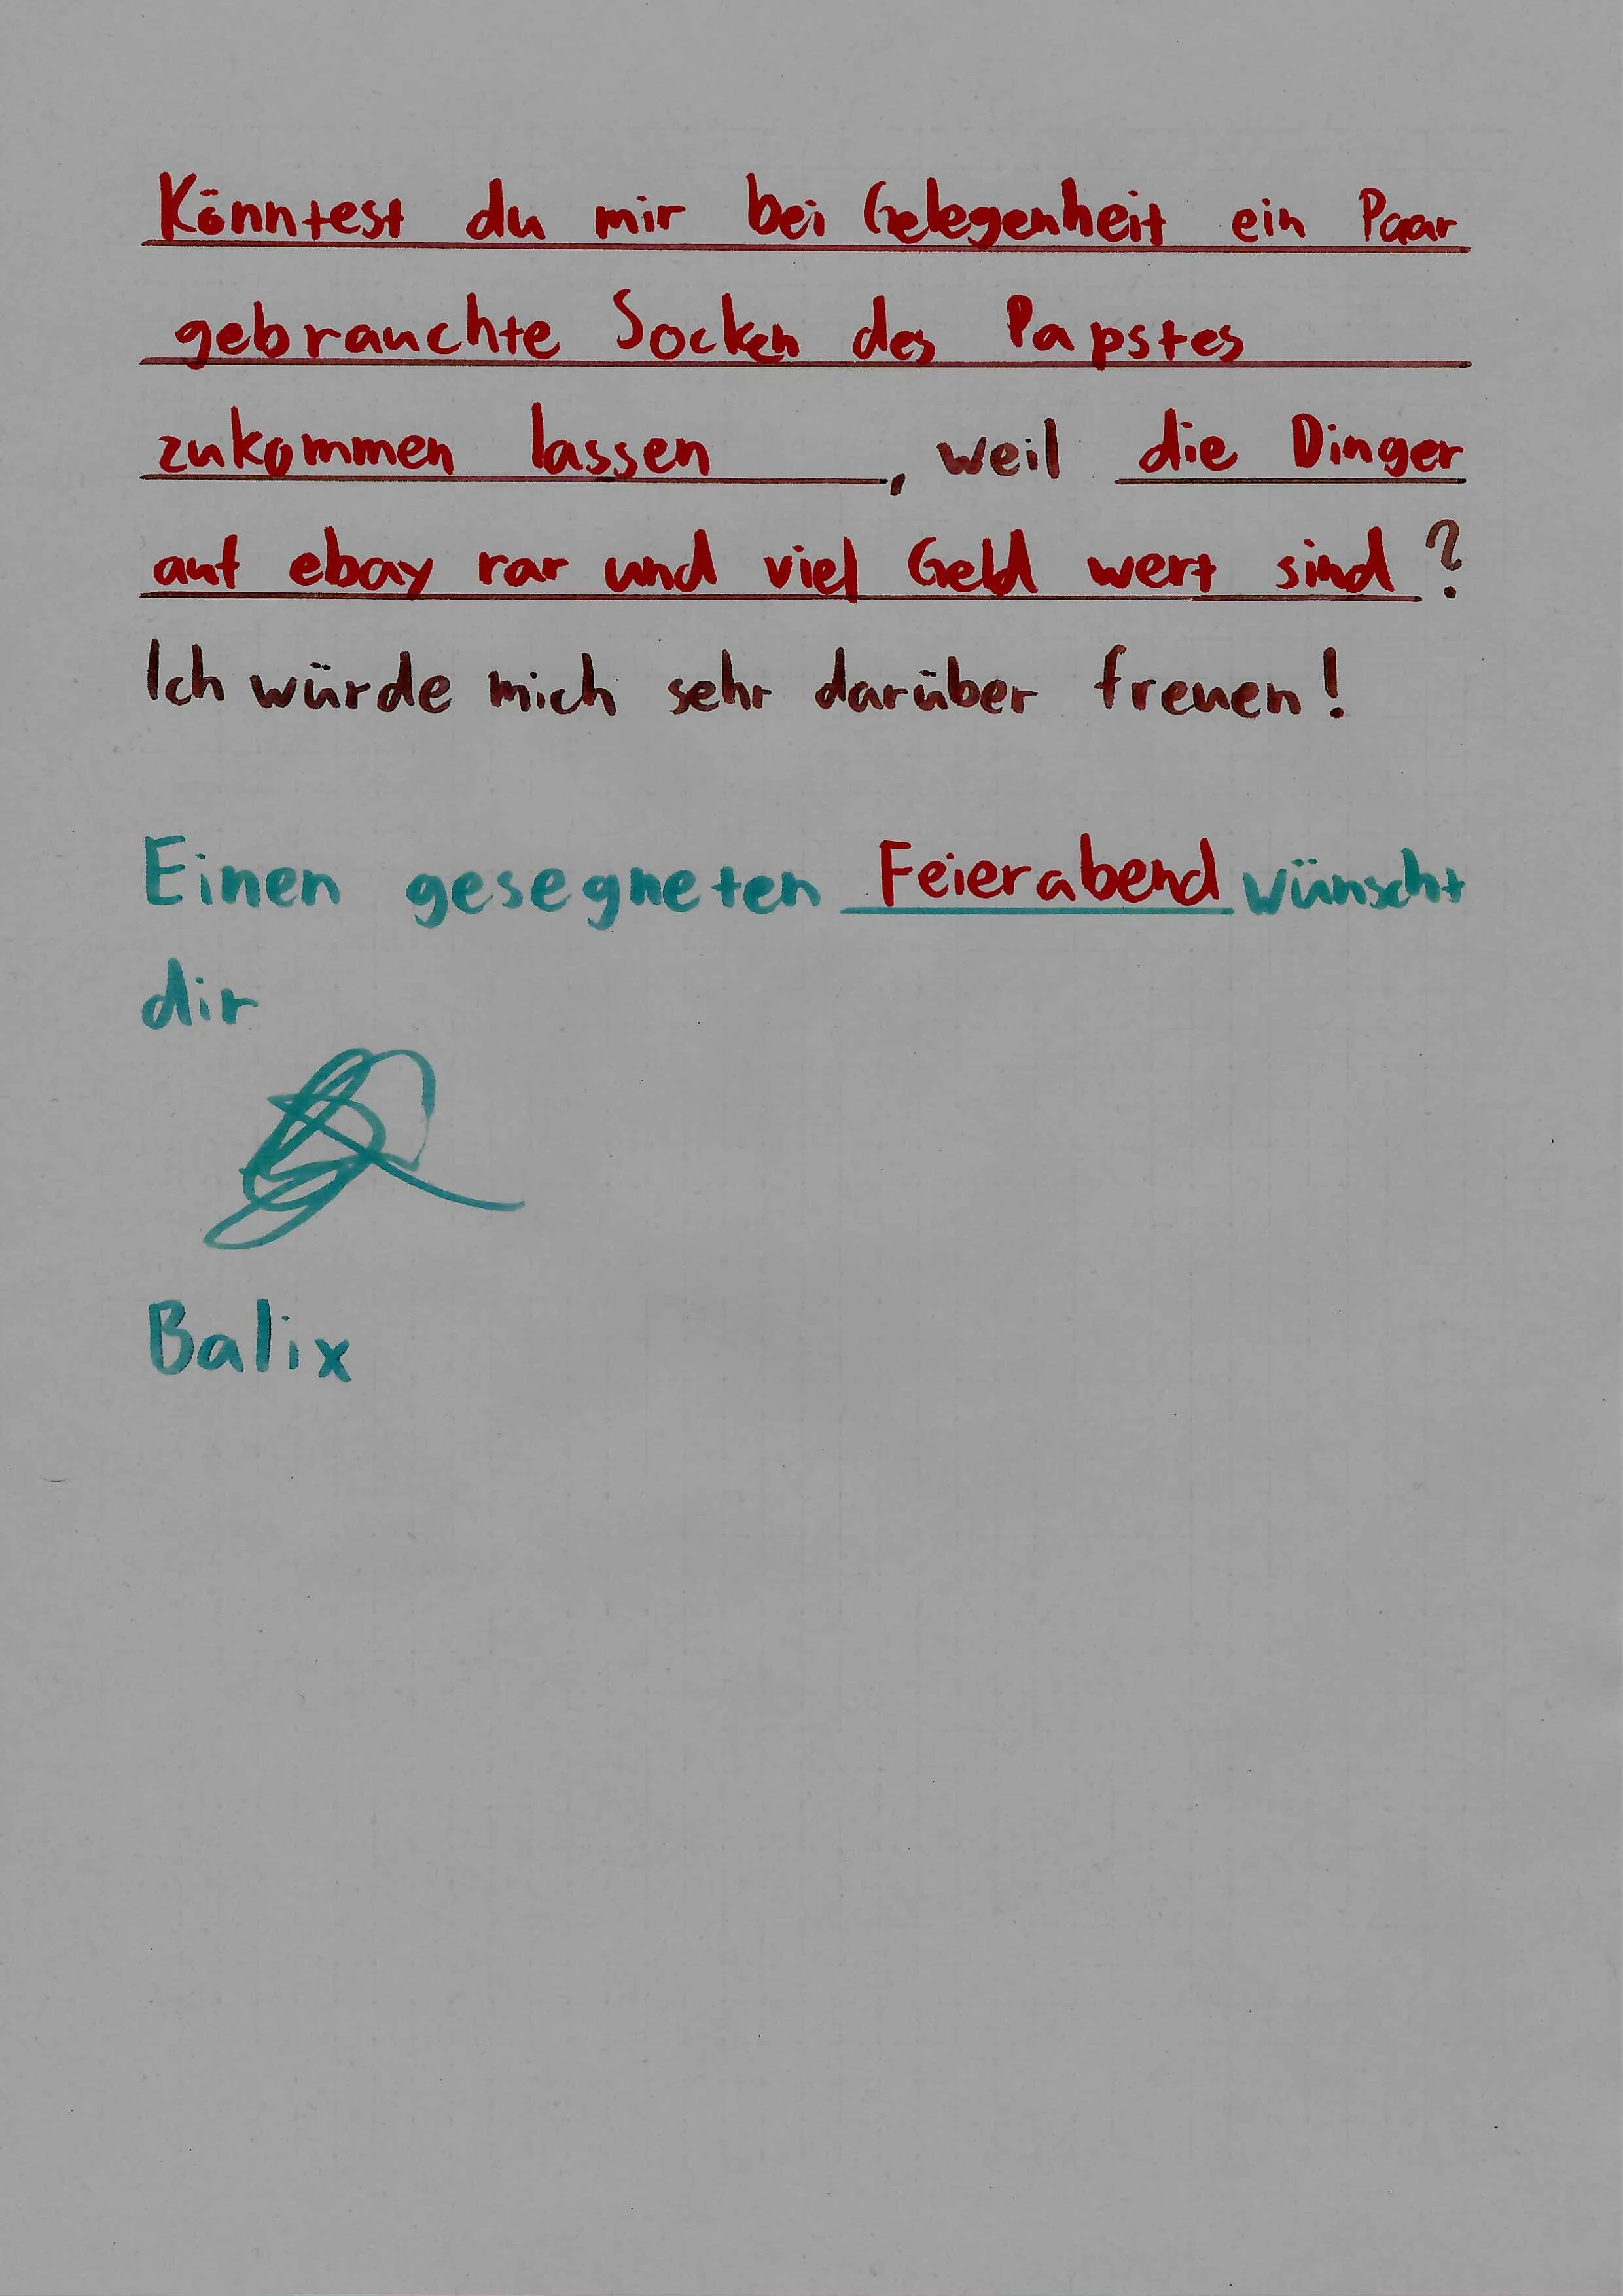 Könntest du mir bei Gelegenheit ein Paar
gebrauchte Socken des Papstes
zukommen lassen, weil die Dinger
auf ebay rar und viel Geld wert sind?
Ich würde mich sehr darüber freuen!
Einen gesegneten Feierabend wünscht
dir
Balix